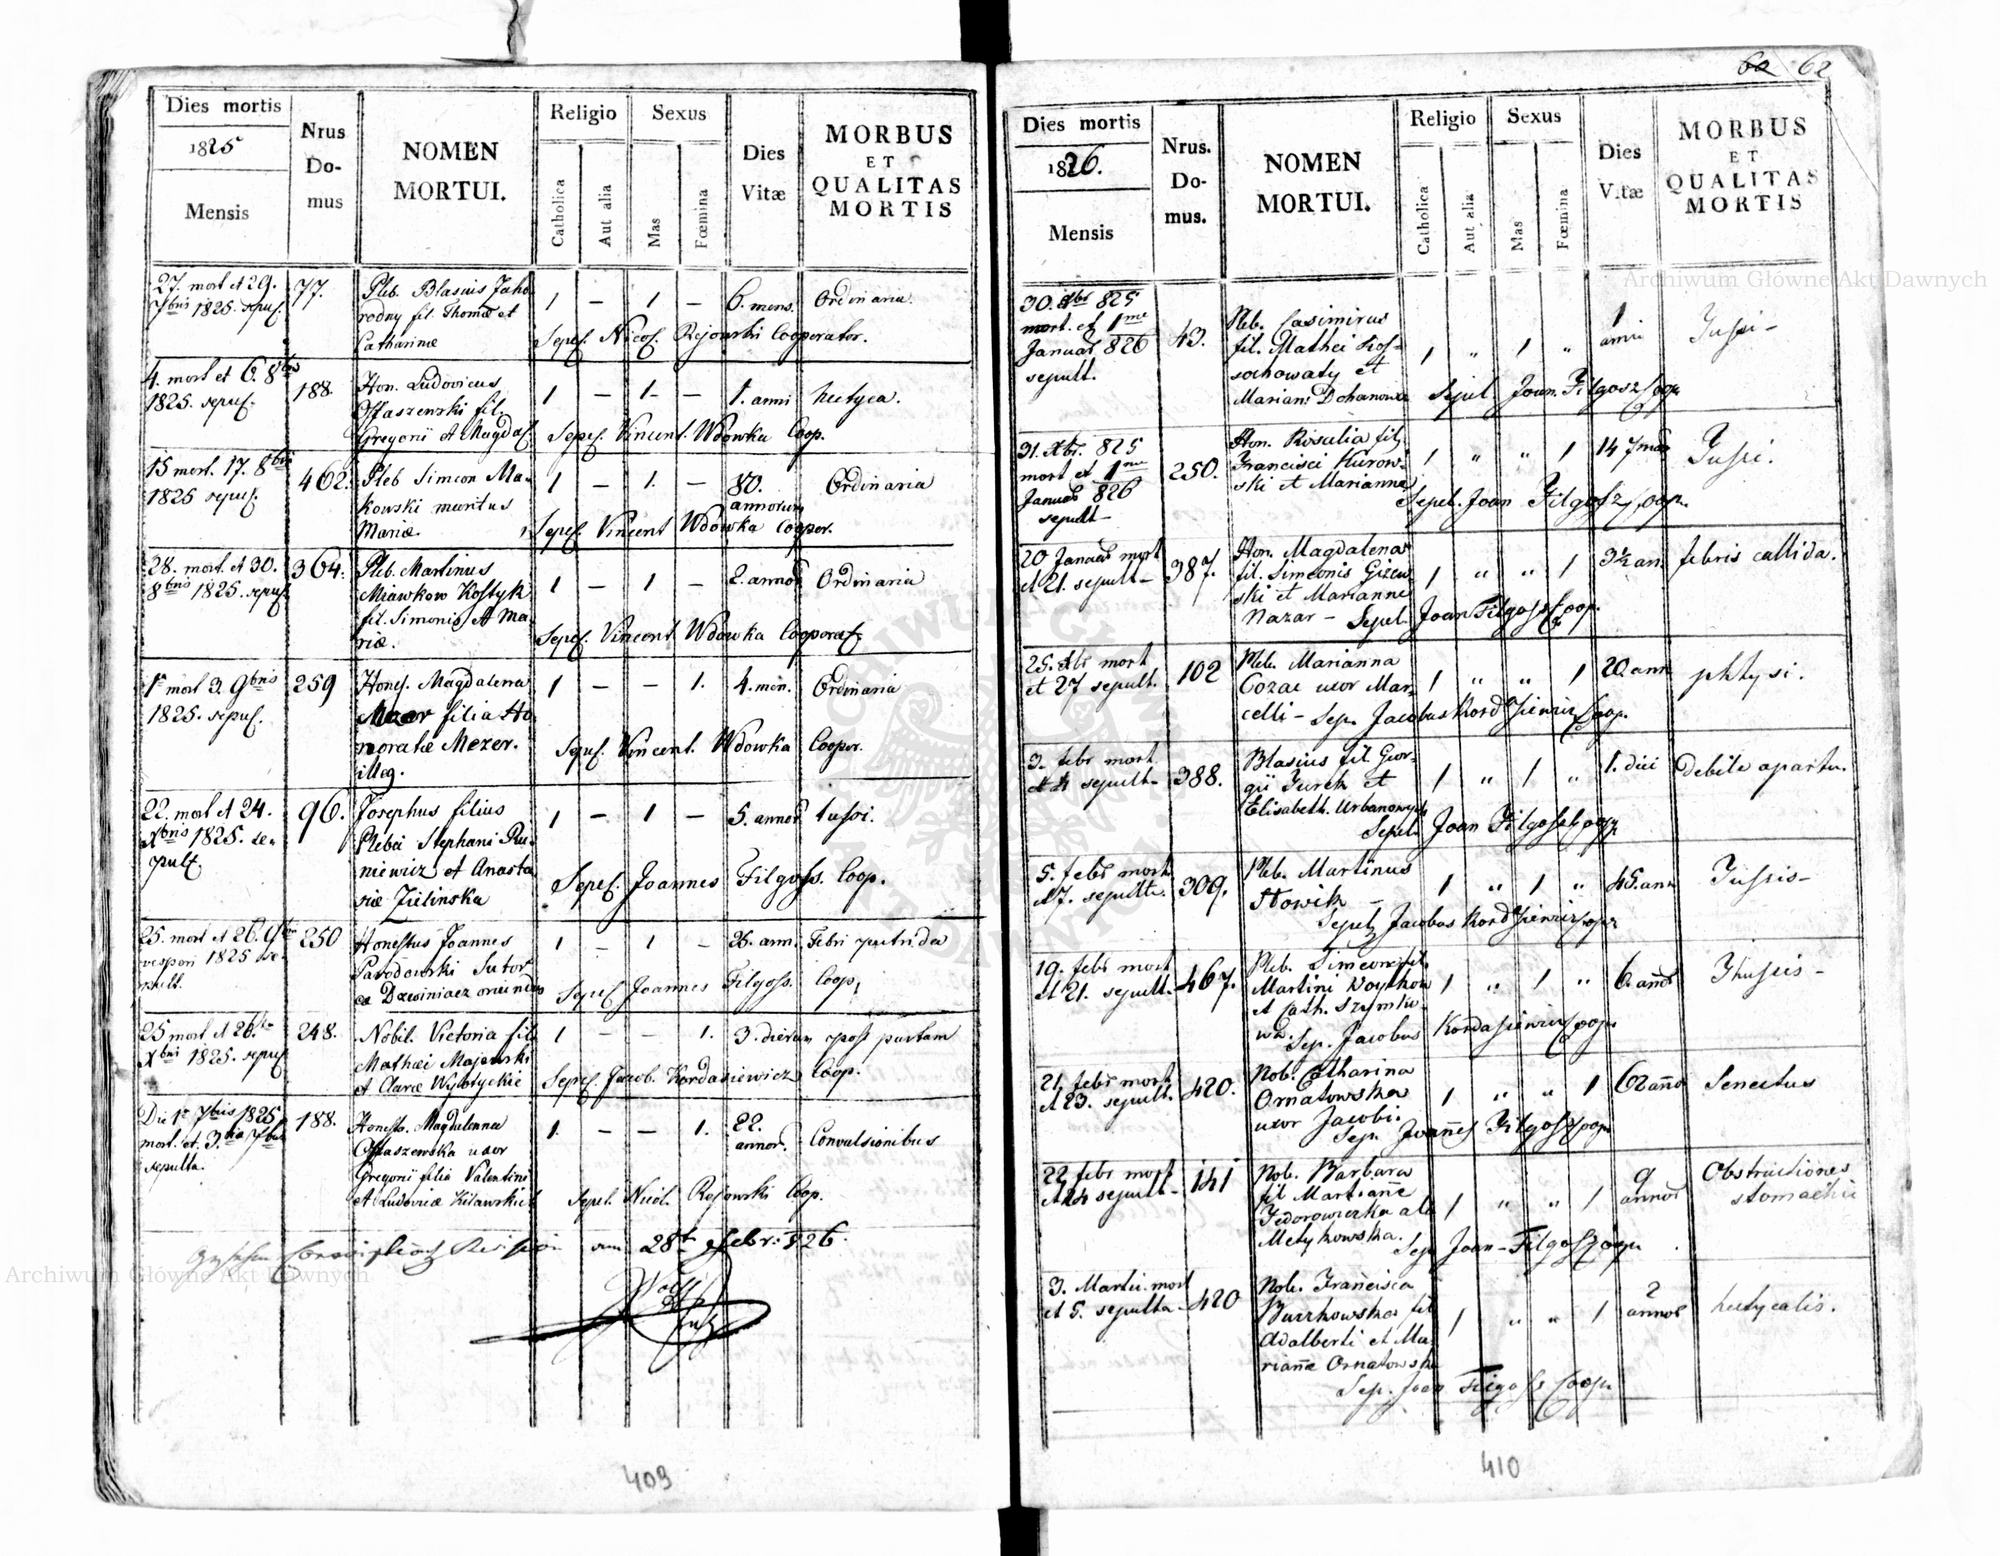 Dies mortis
1825
Mensis
Nrus
Do-
mus
NOMEN
MORTUI.
Religio
Catholica
Aut alia
Sexus
Mas
Fœmina
Dies
Vitæ
MORBUS
ET
QUALITAS
MORTIS
27. mort et 29.
7bris 1825. sepul.
77.
Pleb. Blasius Jaho
rodny fil. Thomæ et
Catharinæ
1 – 1 –
6. mens.
Ordinaria.
Sepel. Nicol. Rejowski Cooperator.
4. mort et 6. 8bris
1825. sepul.
188.
Hon. Ludovicus
Ostaszewski fil.
Gregorii et Magdal.
1 – 1 –
1. anni
hectyca.
Sepel. Vincent. Wdowka Coop.
15 mort. 17. 8bris
1825 sepul.
462.
Pleb Simeon Ma-
kowski maritus
Mariæ.
1 – 1. –
80.
annorum
Ordinaria
Sepel. Vincent Wdowka Cooper.
28. mort. et 30.
8bris 1825. sepul.
364.
Pleb. Martinus
Miawkow Kostyk
fil. Simonis et Ma-
riæ.
1 – 1 –
2. annor
Ordinaria
Sepel. Vincent Wdowka Cooperat.
1a mort 3. 9bris
1825. sepul.
259
Hones. Magdalena
Mezer filia Ho
noratæ Mezer.
illeg.
1 – – 1.
4. men.
Ordinaria
Sepel. Vincent. Wdowka Cooper.
22. mort et 24.
Xbris 1825. se-
pult.
96.
Josephus filius
Plebei Stephani Ru-
niewicz et Anasta
siæ Zielinska
1 – 1 –
5. annor
tussi.
Sepel. Joannes Filgoss. Coop.
25. mort et 26. 9bris
vesperi 1825 se-
pult.
250
Honestus Joannes
Parodowski Sutor
ex Dzwiniacz oriundus
1 – 1 –
26. ann.
Febri putrida
Sepel Joannes Filgoss. Coop.
25 mort et 26.
Xbris 1825. sepul
248.
Nobil. Victoria fil.
Mathæi Majewski
et Claræ Wysotyckie
1 – – 1.
3. dierum
post partam
Sepel. Jacob. Kordasiewicz Coop.
Die 1a 7bris 1825
mort. et 3tia 7bris
sepulta.
188.
Honesta Magdalenna
Ostaszewska uxor
Gregorii filia Valentini
et Ludovicæ Kilawskie
1. – – 1.
22.
annor.
Convulsionibus
Sepel. Nicol. Rejowski Coop.
am 28t Febr: 826
409
62
Dies mortis
1826.
Mensis
Nrus.
Do-
mus.
NOMEN
MORTUI.
Religio
Catholica
Aut alia
Sexus
Mas
Fœmina
Dies
Vitæ
MORBUS
ET
QUALITAS
MORTIS
30. Xbr 825
mort. et 1me
Januar 826
sepult.
43.
Pleb. Casimirus
fil. Mathei Kos-
sochowaty et
Marian: Dohanowa
1 " 1 "
1
anni
Tussi –
Sepel Joan. Filgosz Coop.
31. Xbr. 825
mort et 1me
Januar 826
sepult –
250.
Hon. Rosalia fil.
Francisci Kurow-
ski et Marianna
1 " " 1
14
Tussi.
Sepel. Joan Filgosz Coop.
20 Januar mort
et 21. sepult –
387.
Hon. Magdalena
fil. Simeonis Gizew
ski et Marianne
Nazar – Sepel. Joan Filgosz Coop.
1 " " 1
3½ an.
febris callida.
25. Xbr mort
et 27 sepult.
102
Pleb. Marianna
Cozac uxor Mar-
celli – Sep. Jacobus Kordasiewicz Coop.
1 " " 1
20 ann
phtysi.
3. febr mort
et 4 sepult –
388.
Blasius fil Geor-
gii Jurek et
Elisabeth. Urbanowych
1 " 1 "
1. diei
Debile apartu.
Sepel. Joan Filgosz Coop.
5. febr mort
et 7. sepult.
309.
Pleb. Martinus
Slowik –
1 " 1 "
45. ann
Tussis –
Sepel. Jacobus Kordasiewicz Coop.
19. febr mort
et 21. sepult.
467.
Pleb. Simeon fil.
Martini Woytkow
et Cath. Szymko
wa. Sep. Jacobus Kordasiewicz Coop.
1 " 1 "
6 annor
Thussis –
21. febr mort
et 23. sepult.
420.
Nob. Catharina
Ornatowska
uxor Jacobi.
1 " " 1
62 anno
Senectus
Sep. Joannes Filgosz Coop.
22 febr mort
et 24 sepult –
141
Nob. Barbara
fil Marianne
Fedorowiczka ala
Metykowska.
1 " " 1
9
annor
Obstructiones
stomachii
Sep. Joan – Filgosz Coop.
3. Martii. mort
et 5. sepulta –
420
Nob. Francisca
Burzkowska fil
Adalberti et Ma-
rianæ Ornatowska
1 " " 1
2
annor
hectycalis.
Sep. Joan Filgosz Coop.
410
Archiwum Główne Akt Dawnych
Archiwum Główne Akt Dawnych